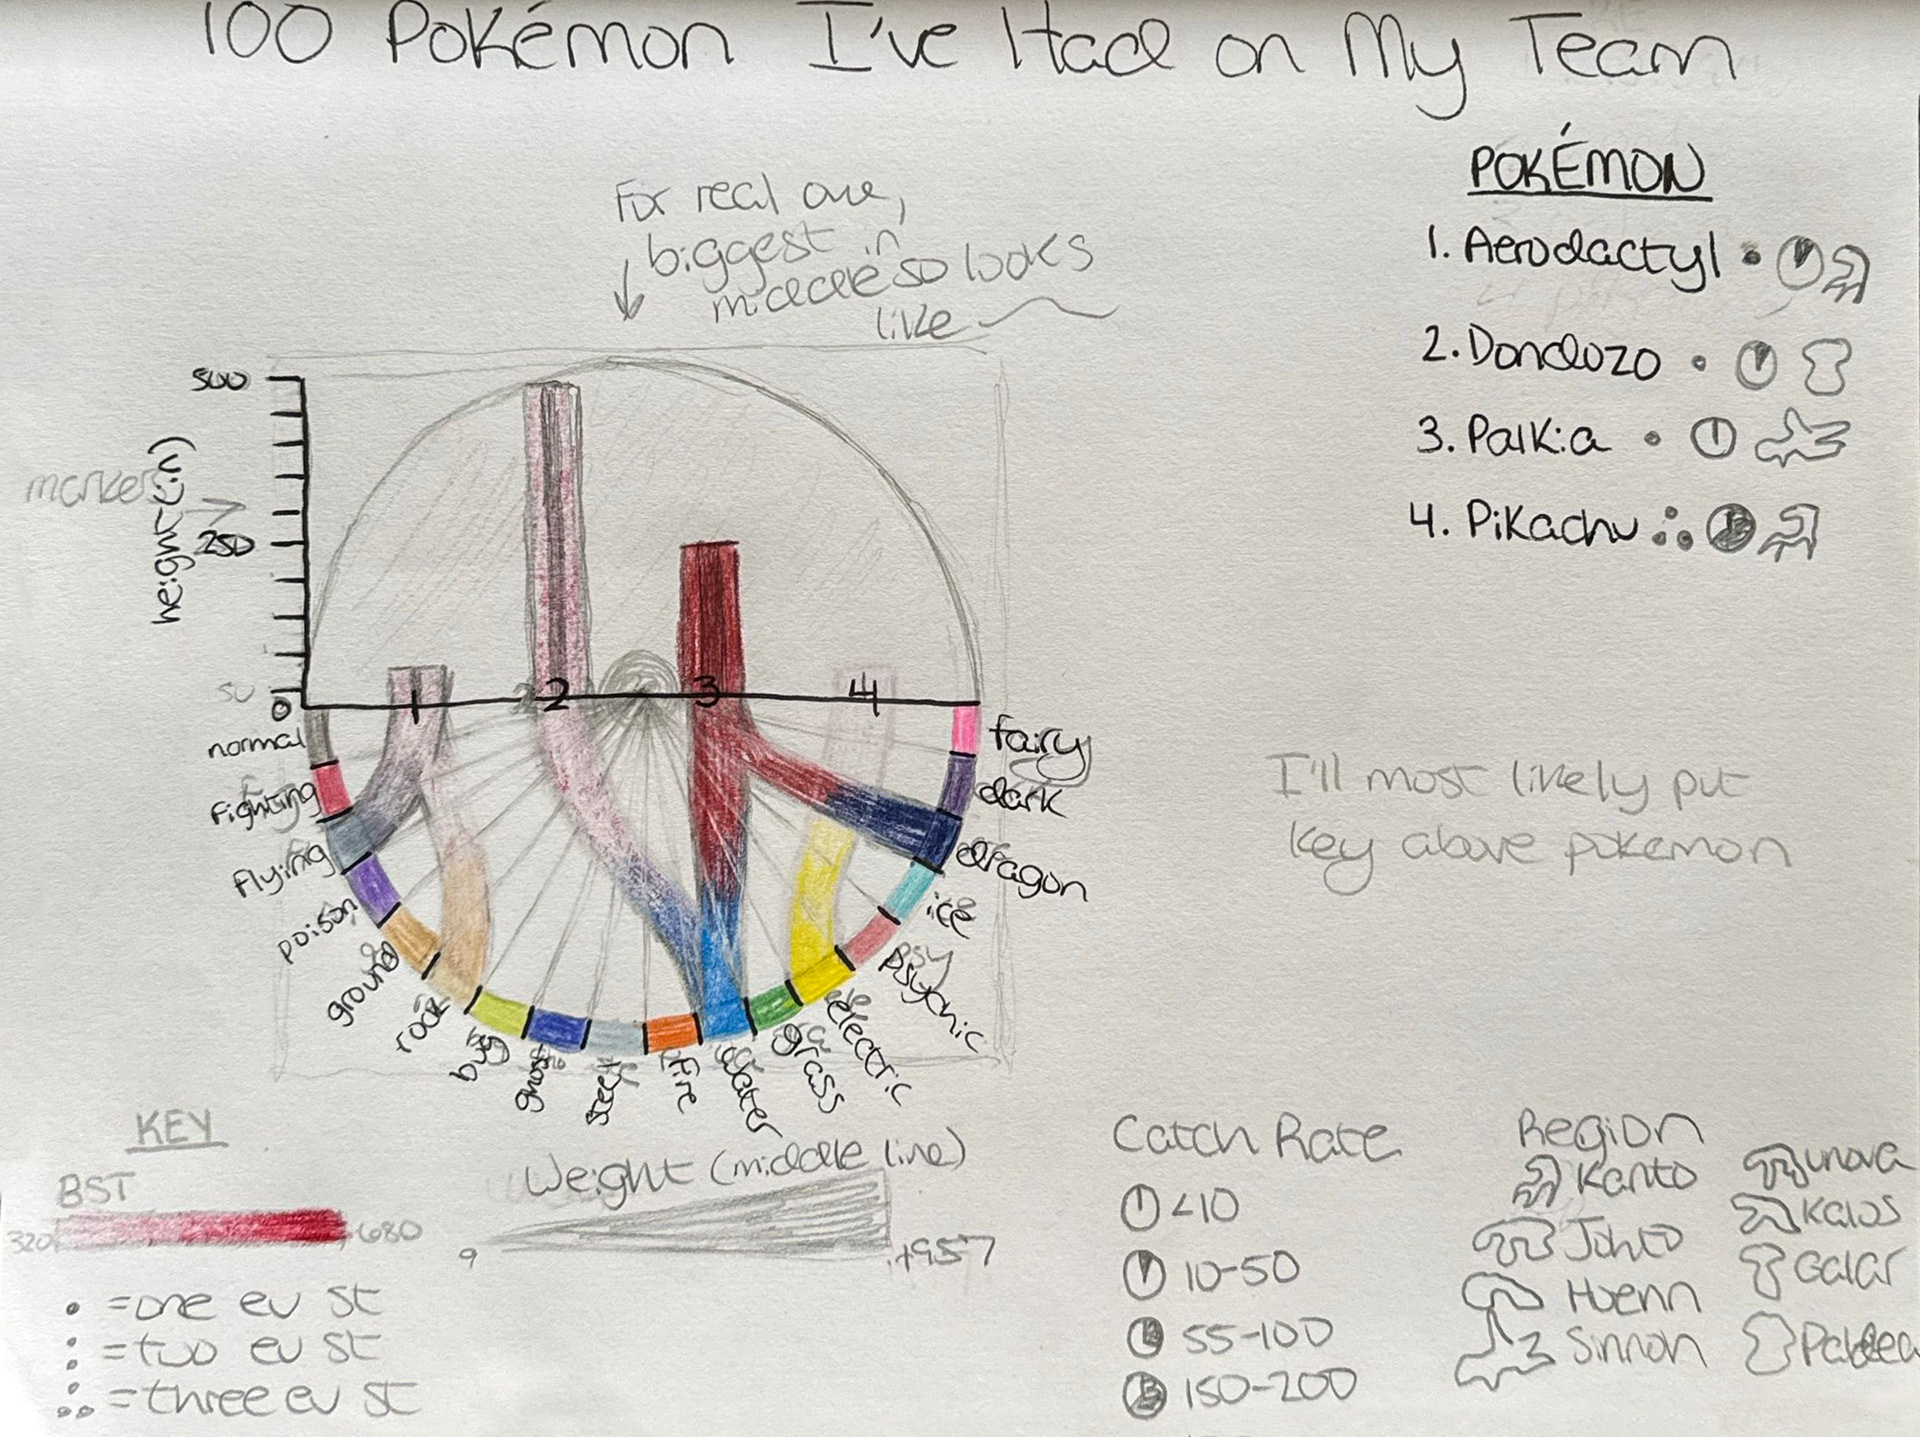 100 Pokémon I've Had on My Team
For real one,
biggest in
middle so looks
like
POKÉMON
1. Aerodactyl
2. Dondozo
3. Palkia
4. Pikachu
marker
height (in)
500
250
50
0
1 2 3 4
normal
fighting
flying
poison
ground
rock
bug
ghost
steel
fire
water
grass
electric
psychic
ice
dragon
dark
fairy
I'll most likely put
key above pokemon
KEY
BST
320 680
• = one ev st
: = two ev st
∴ = three ev st
Weight (middle line)
9
Catch Rate
<10
10-50
55-100
150-200
Region
Kanto
Johto
Hoenn
Sinnoh
unova
Kalos
Galar
Paldea